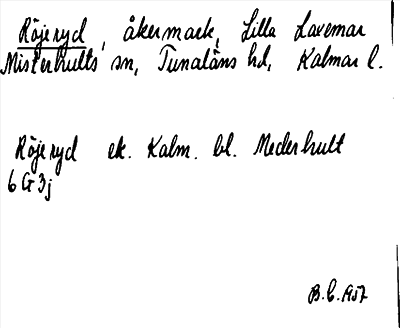 Röjeryd, åkermark, Lilla Laxemar
Misterhults sn, Tunaläns hd, Kalmar l.
Röjeryd ek. Kalm. bl. Mederhult
6 G 3j
B.C. 1957